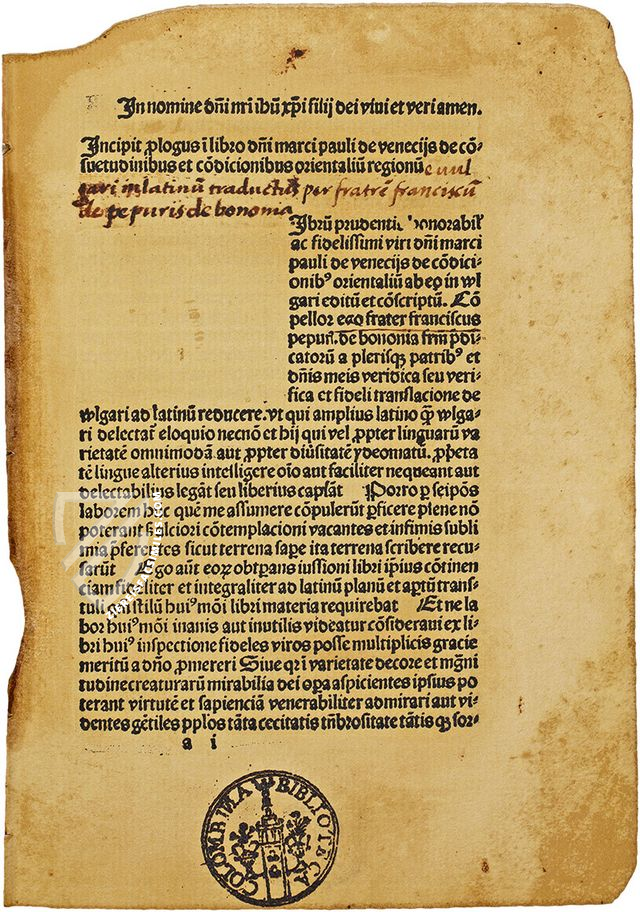 In nomine dñi nr̃i ihũ xp̃i filij dei viui et veri amen.
Incipit ꝓlogus ĩ libro dñi marci pauli de venecijs de cõ-
suetudinibus et cõdicionibus orientaliũ regionũ e vul
gari in latinũ traductus per fratrẽ franciscũ
de pepuris de bononia
Ibrũ prudentis honorabil
ac fidelissimi viri dñi marci
pauli de venecijs de cõdici-
onibꝰ orientaliũ ab eo in wl
gari editũ et cõscriptũ. Cõ
pellor ego frater franciscus
pepur. de bononia frm̃ p̃di-
catorũ a plerisqꝫ patribꝰ et
dñis meis veridica seu veri-
fica et fideli translacione de
wlgari ad latinũ reducere. vt qui amplius latino qꝫ wlga-
ri delectant̃ eloquio necnõ et hij qui vel ꝓpter linguarũ va
rietatẽ omnimodã aut ꝓpter diũsitatẽ ydeomatũ. ꝓp̃eta
tẽ lingue alterius intelligere oĩo aut faciliter nequeant aut
delectabilius legãt seu liberius capiãt Porro ꝑ seipõs
laborem hũc quẽ me assumere cõpulerũt ꝑficere plene nõ
poterant s alciori cõtemplacioni vacantes et infimis subli
mia p̃ferentes sicut terrena sape ita terrena scribere recu-
sarũt Ego aut̃ eoꝝ obtꝑans iussioni libri ip̃ius cõtinen
ciam fideliter et integraliter ad latinũ planũ et aꝑtũ trans-
tuli stilũ huiꝰ mõi libri materia requirebat Et ne la
bor huiꝰ mõi inanis aut inutilis videatur cõsideraui ex li-
bri huiꝰ inspectione fideles viros posse multiplicis gracie
meritũ a dño ꝓmereri Siue qꝛ ĩ varietate decore et mg̃ni
tudine creaturarũ mirabilia dei oꝑa aspicientes ipsius po
terant virtutẽ et sapienciã venerabiliter admirari aut vi-
dentes gẽtiles pplos tãta cecitatis tñbrositate tãtis qꝫ sor-
a i
COLOMBINA BIBLIOTECA